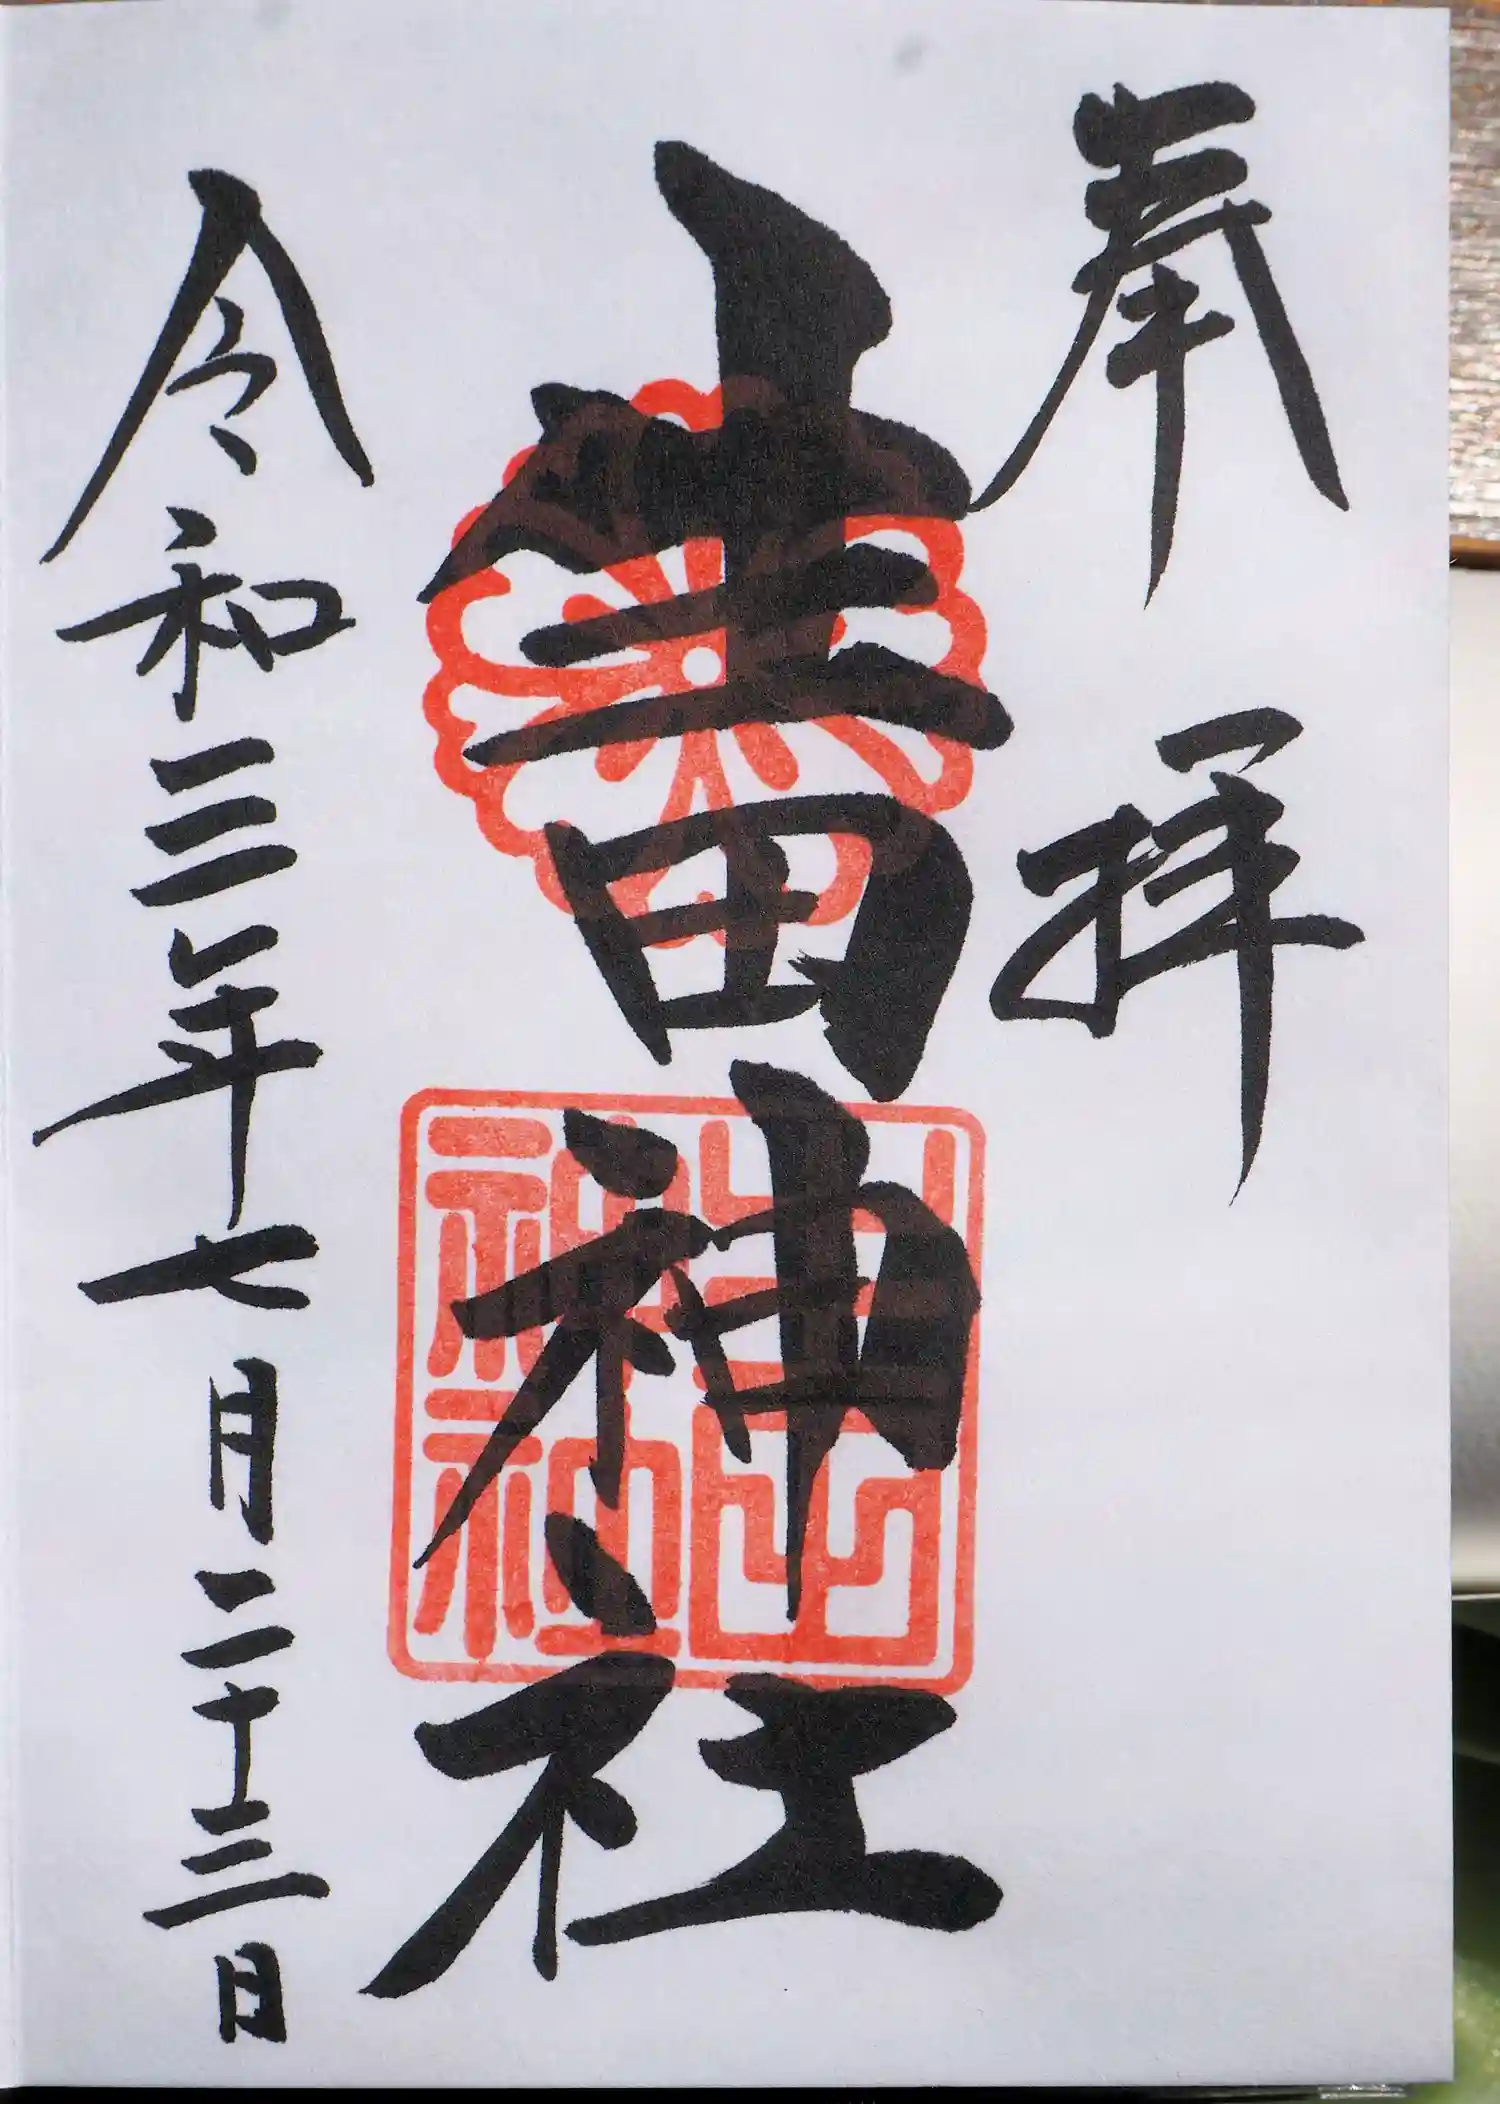 奉拝
神社
令和三年七月二十三日
神社